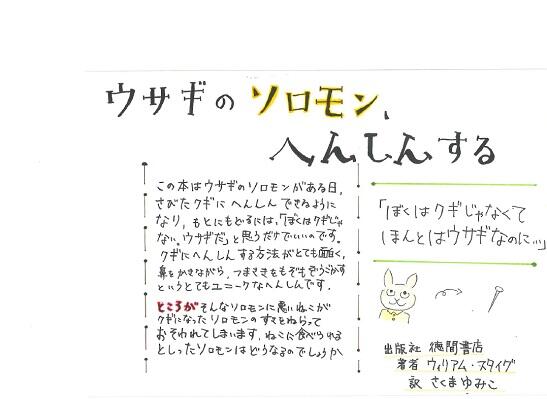 ウサギのソロモン、
へんしんする
この本はウサギのソロモンがある日、
さびたクギにへんしんできるように
なり、もとにもどるには、「ぼくはクギじゃ
ない、ウサギだ」と思うだけでいいのです。
クギにへんしんする方法がとても面白く、
鼻をかきながら、つまさきをもぞもぞうごかす
というとてもユニークなへんしんです。
ところがそんなソロモンに悪いねこが
クギになったソロモンのすきをねらって
おそわれてしまいます。ねこに食べられる
としったソロモンはどうなるのでしょうか
「ぼくはクギじゃなくて
ほんとはウサギなのに…」
出版社 徳間書店
著者 ウィリアム・スタイグ
訳 さくまゆみこ